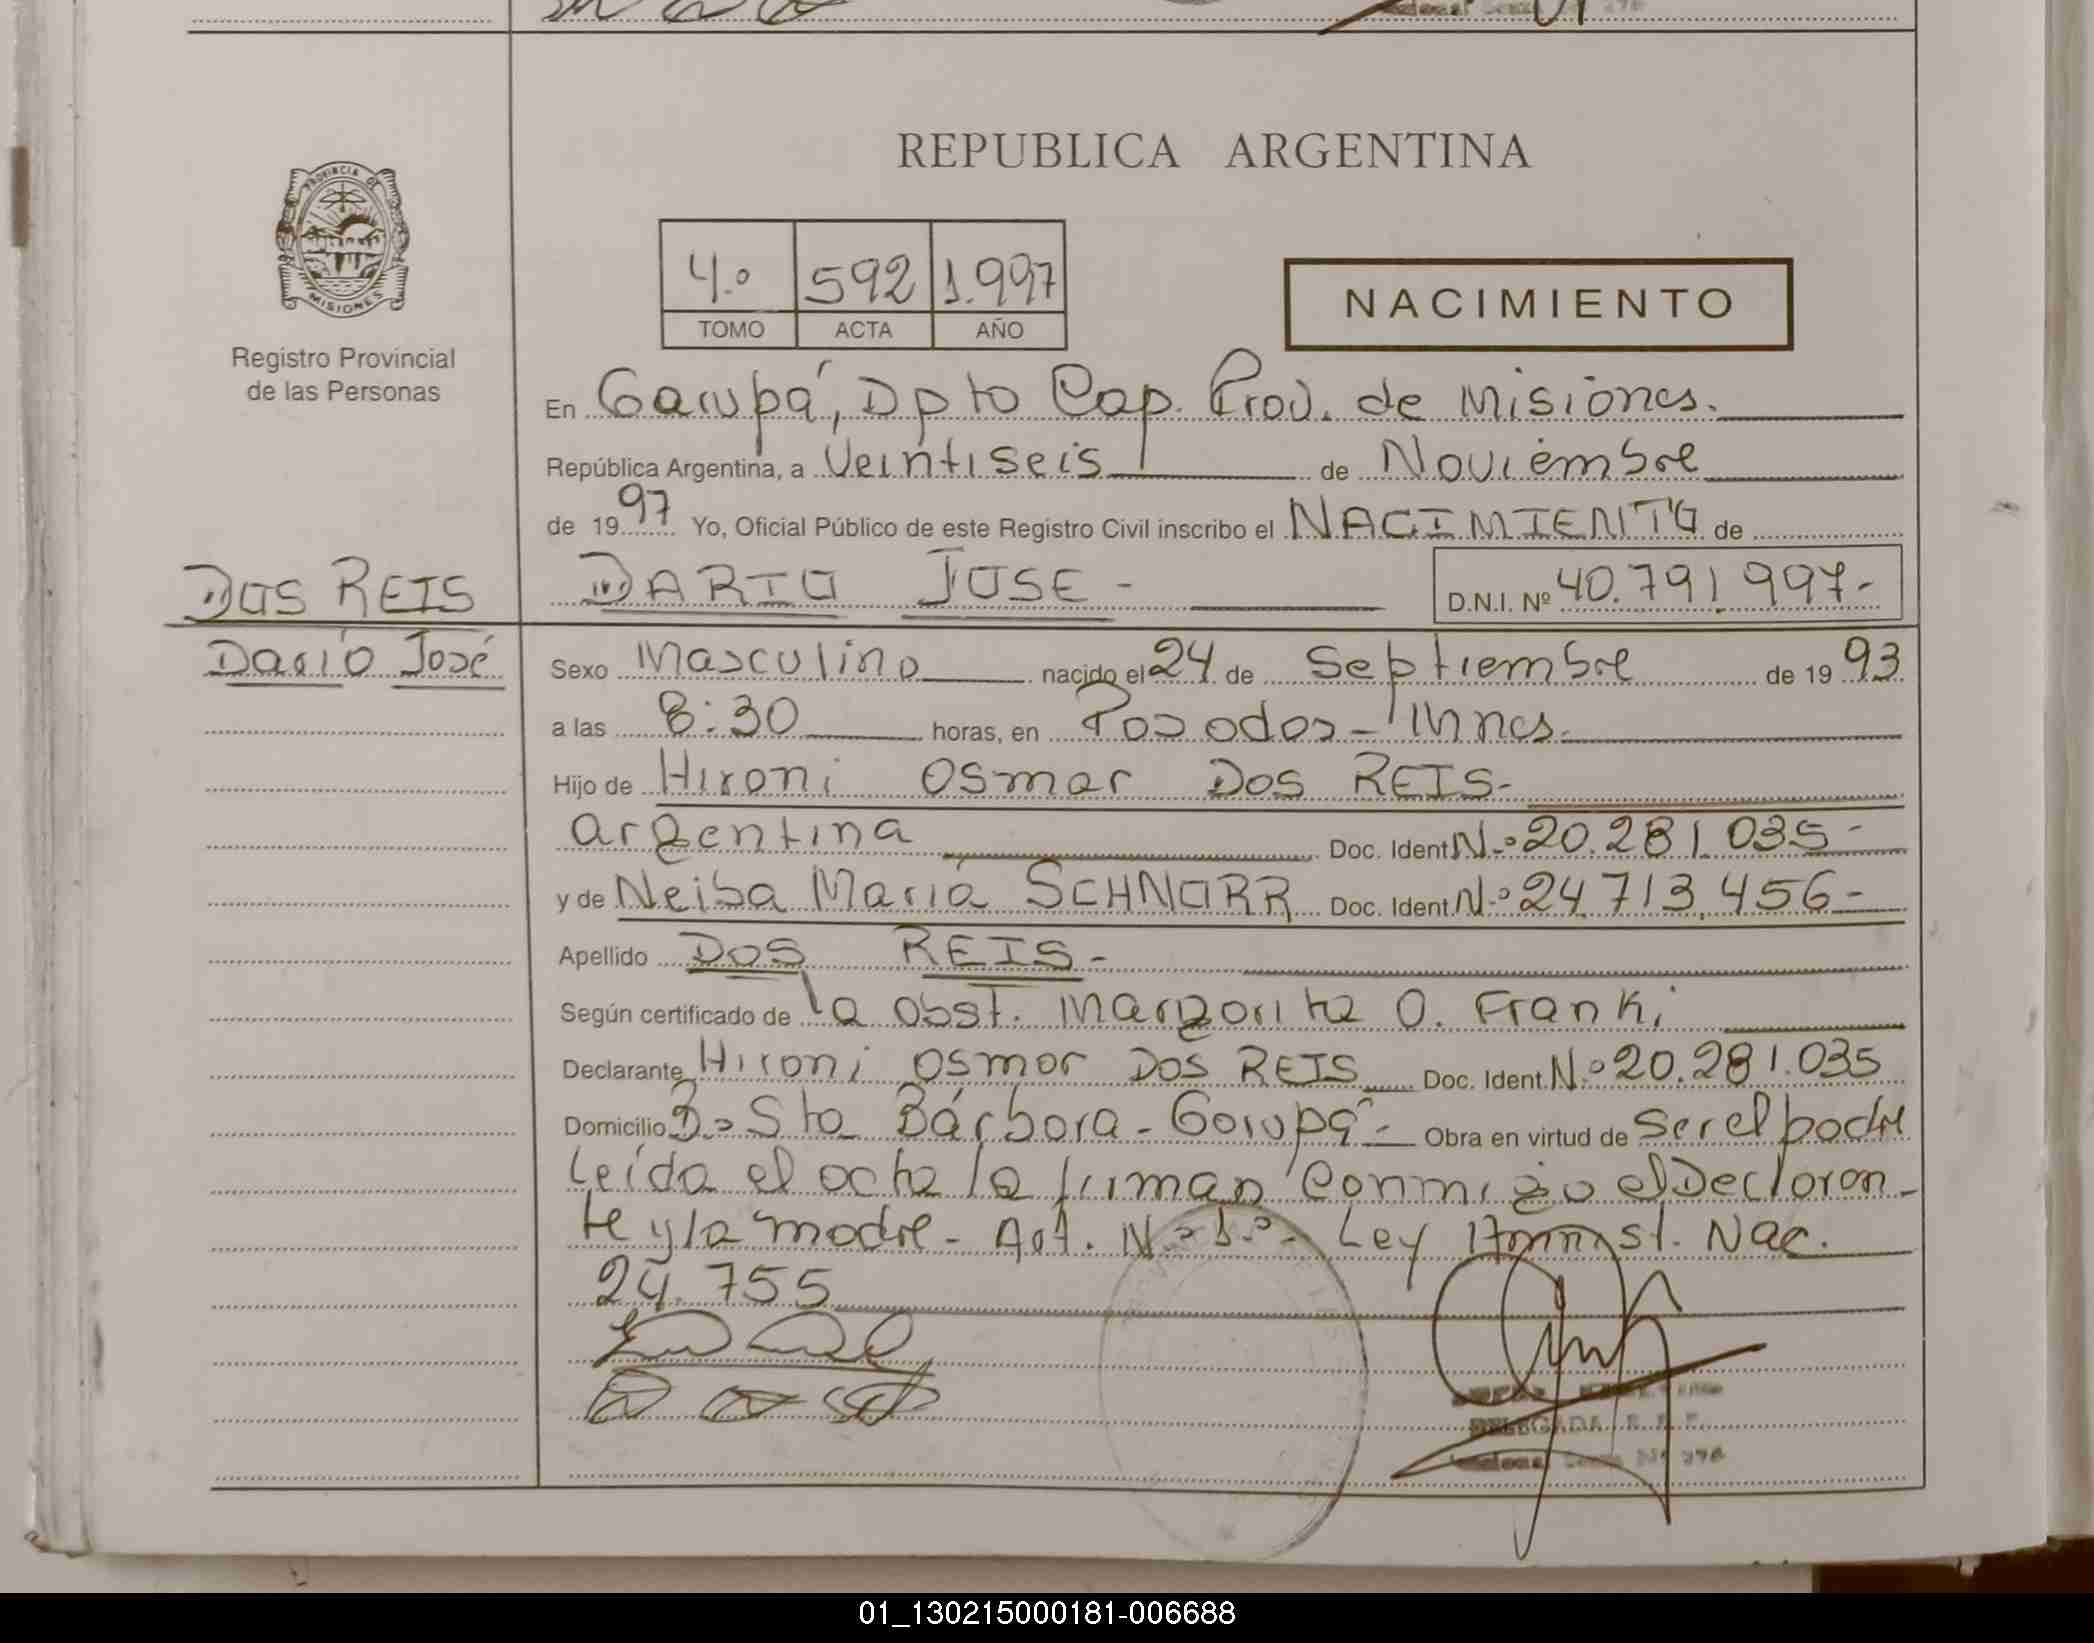 REPUBLICA ARGENTINA
PROVINCIA DE
MISIONES
Registro Provincial
de las Personas
4.º 592 1.997
TOMO ACTA AÑO
NACIMIENTO
En Garupá, Dpto Cap. Prov. de Misiones.
República Argentina, a Veintiseis de Noviembre
de 1997 Yo, Oficial Público de este Registro Civil inscribo el NACIMIENTO de
DOS REIS
DARIO JOSE - D.N.I. Nº 40.791.997-
Darío José
Sexo Masculino nacido el 24 de Septiembre de 1993
a las 8:30 horas, en Posadas - Mnes.
Hijo de Hironi Osmar Dos REIS-
argentina Doc. Ident. N.º 20.281.035-
y de Neisa María SCHNORR Doc. Ident. N.º 24.713.456-
Apellido DOS REIS-
Según certificado de la Obst. Margarita O. Franki
Declarante Hironi Osmar Dos REIS Doc. Ident. N.º 20.281.035
Domicilio B.º Sta Bárbara - Garupá - Obra en virtud de Ser el padre
Leída el acta la firman conmigo el Declaran-
te y la madre - Art. N.º 1.º - Ley Amnist. Nac.
24.755
DELEGADA
01_130215000181-006688